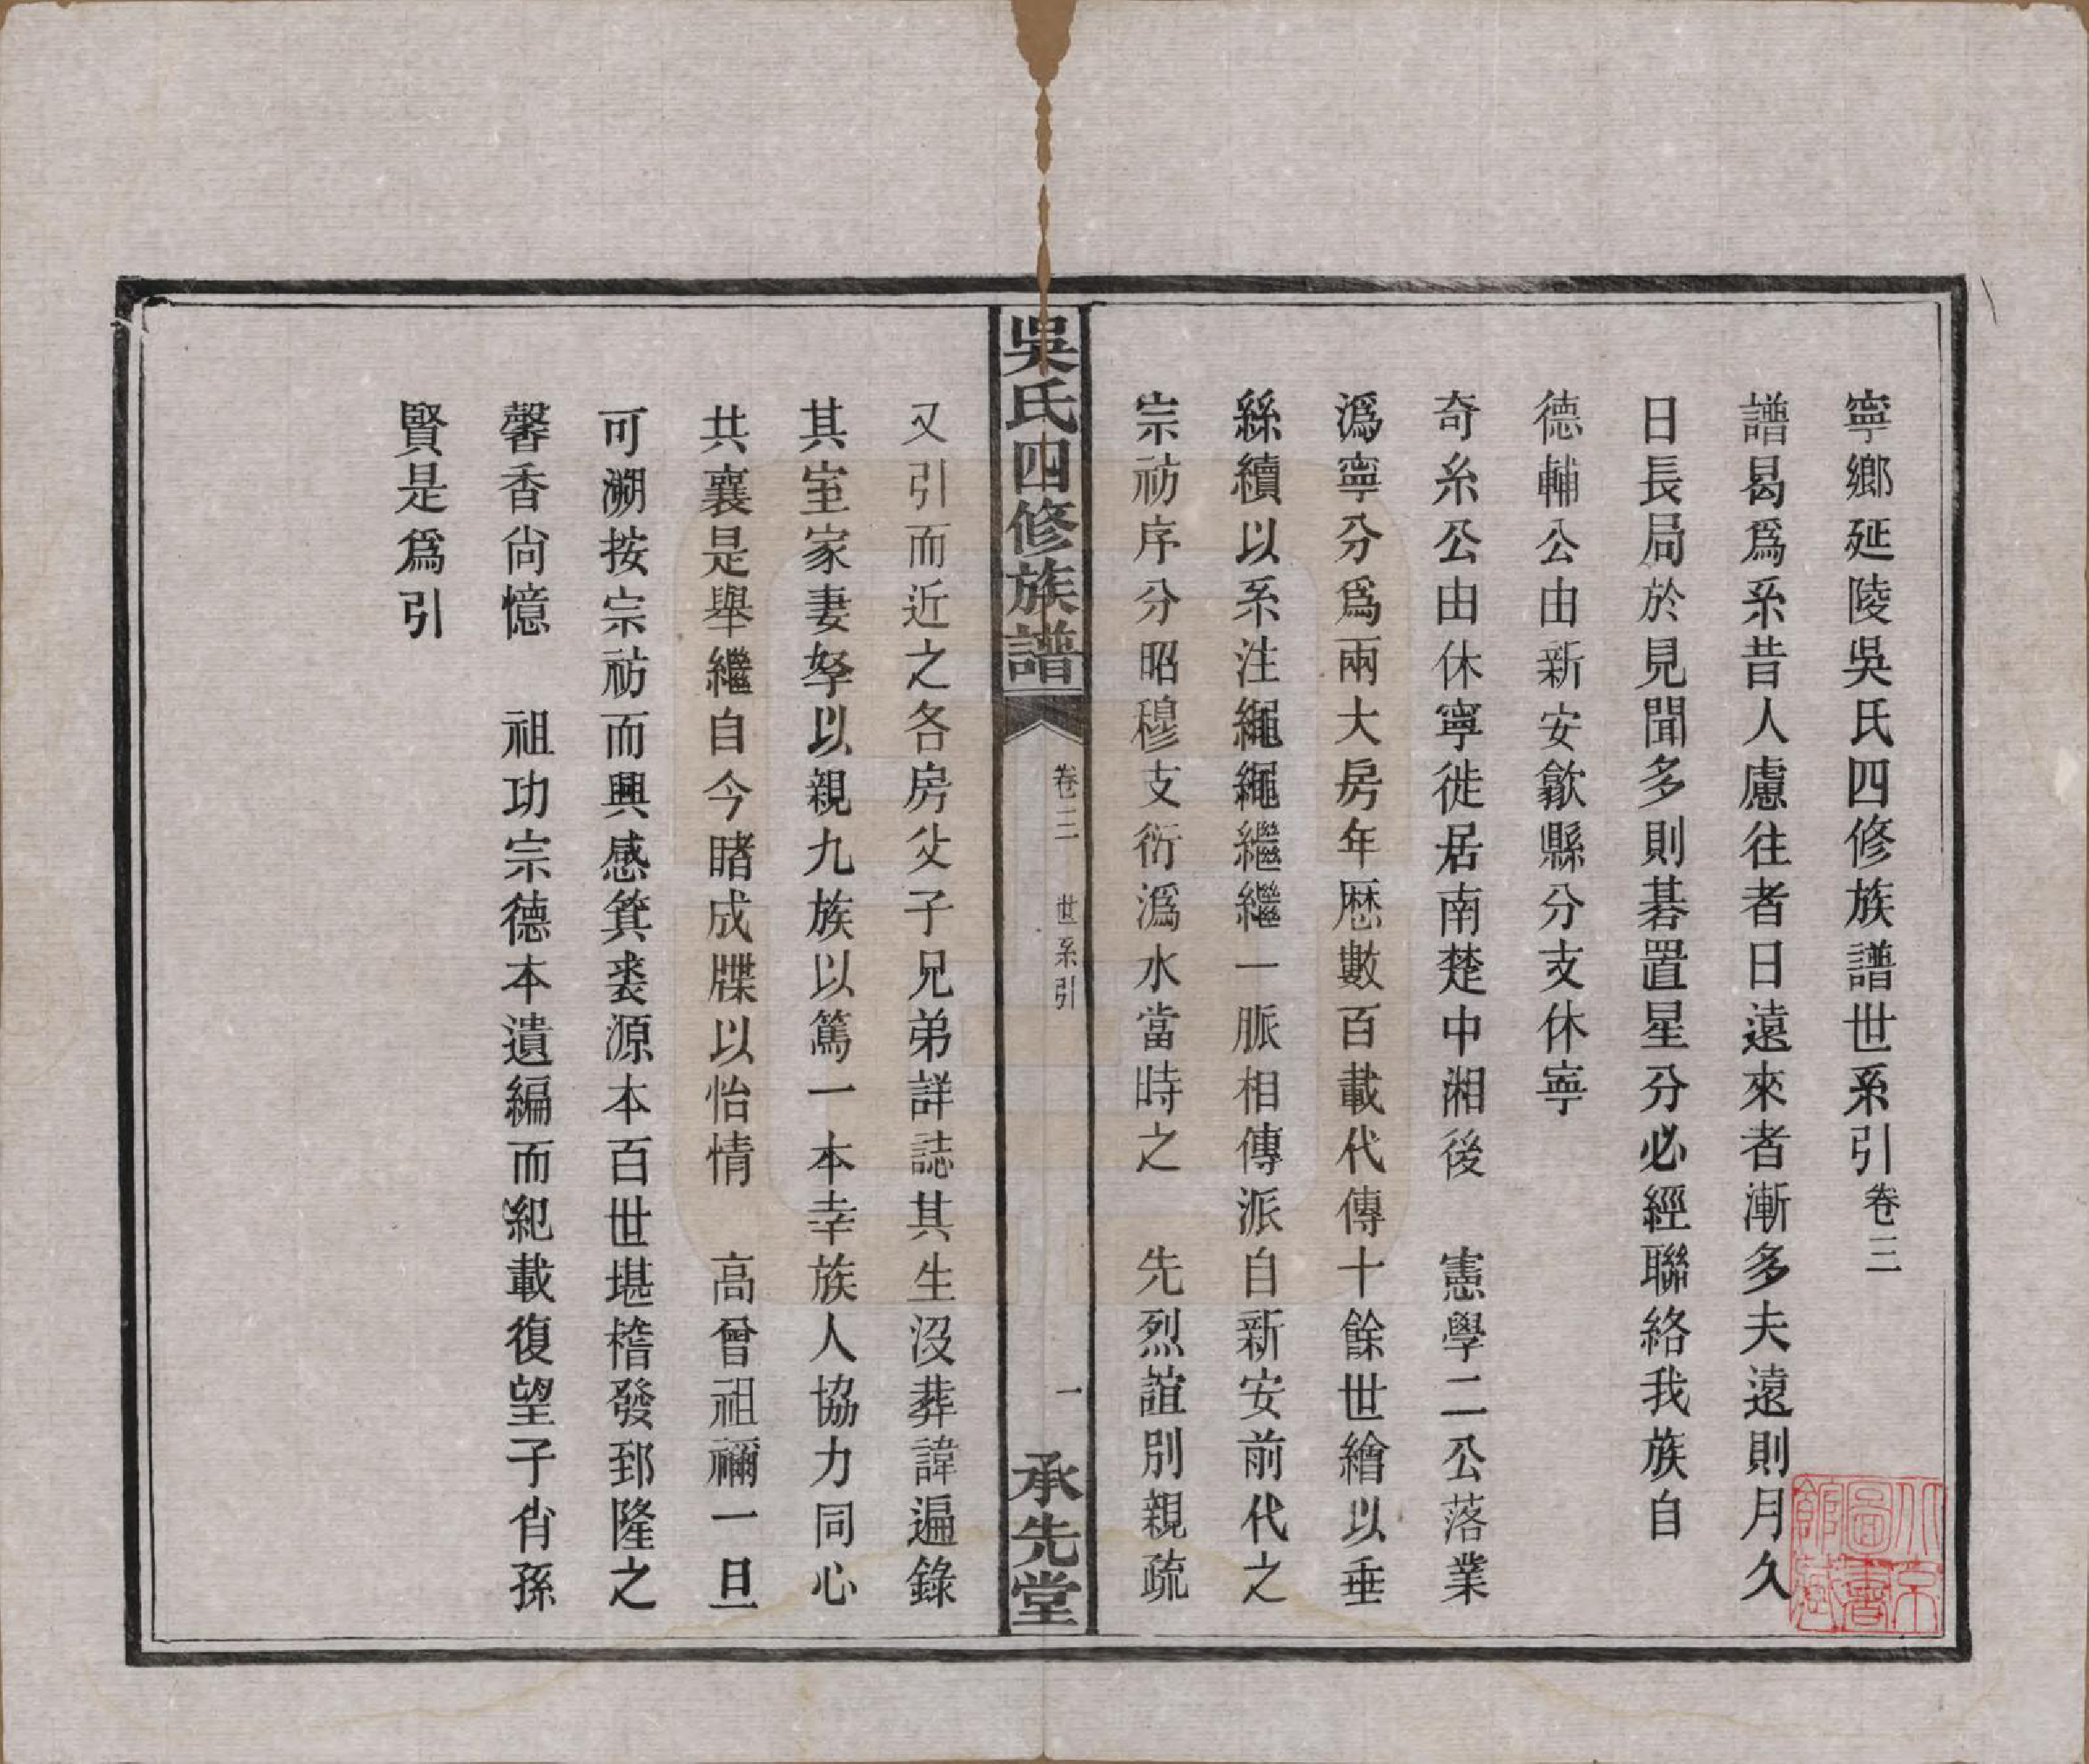 寧鄉延陵吳氏四修族譜世系引卷三
譜曷爲系昔人慮往者日遠來者漸多夫遠則月久
日長局於見聞多則碁置星分必經聯絡我族自
德輔公由新安歙縣分支休寧
奇糸公由休寧徙居南楚中湘後　憲學二公落業
潙寧分爲兩大房年歷數百載代傳十餘世繪以垂
絲續以系注繩繩繼繼一脈相傳派自新安前代之
宗祊序分昭穆支衍潙水當時之　先烈誼別親疏
吳氏四修族譜
卷三　世系引
一
承先堂
又引而近之各房父子兄弟詳誌其生沒葬諱遍錄
其室家妻孥以親九族以篤一本幸族人協力同心
共襄是舉繼自今睹成牒以怡情　高曾祖禰一旦
可溯按宗祊而興感箕裘源本百世堪稽發郅隆之
馨香尚憶　祖功宗德本遺編而紀載復望子肖孫
賢是爲引
北京圖書館藏